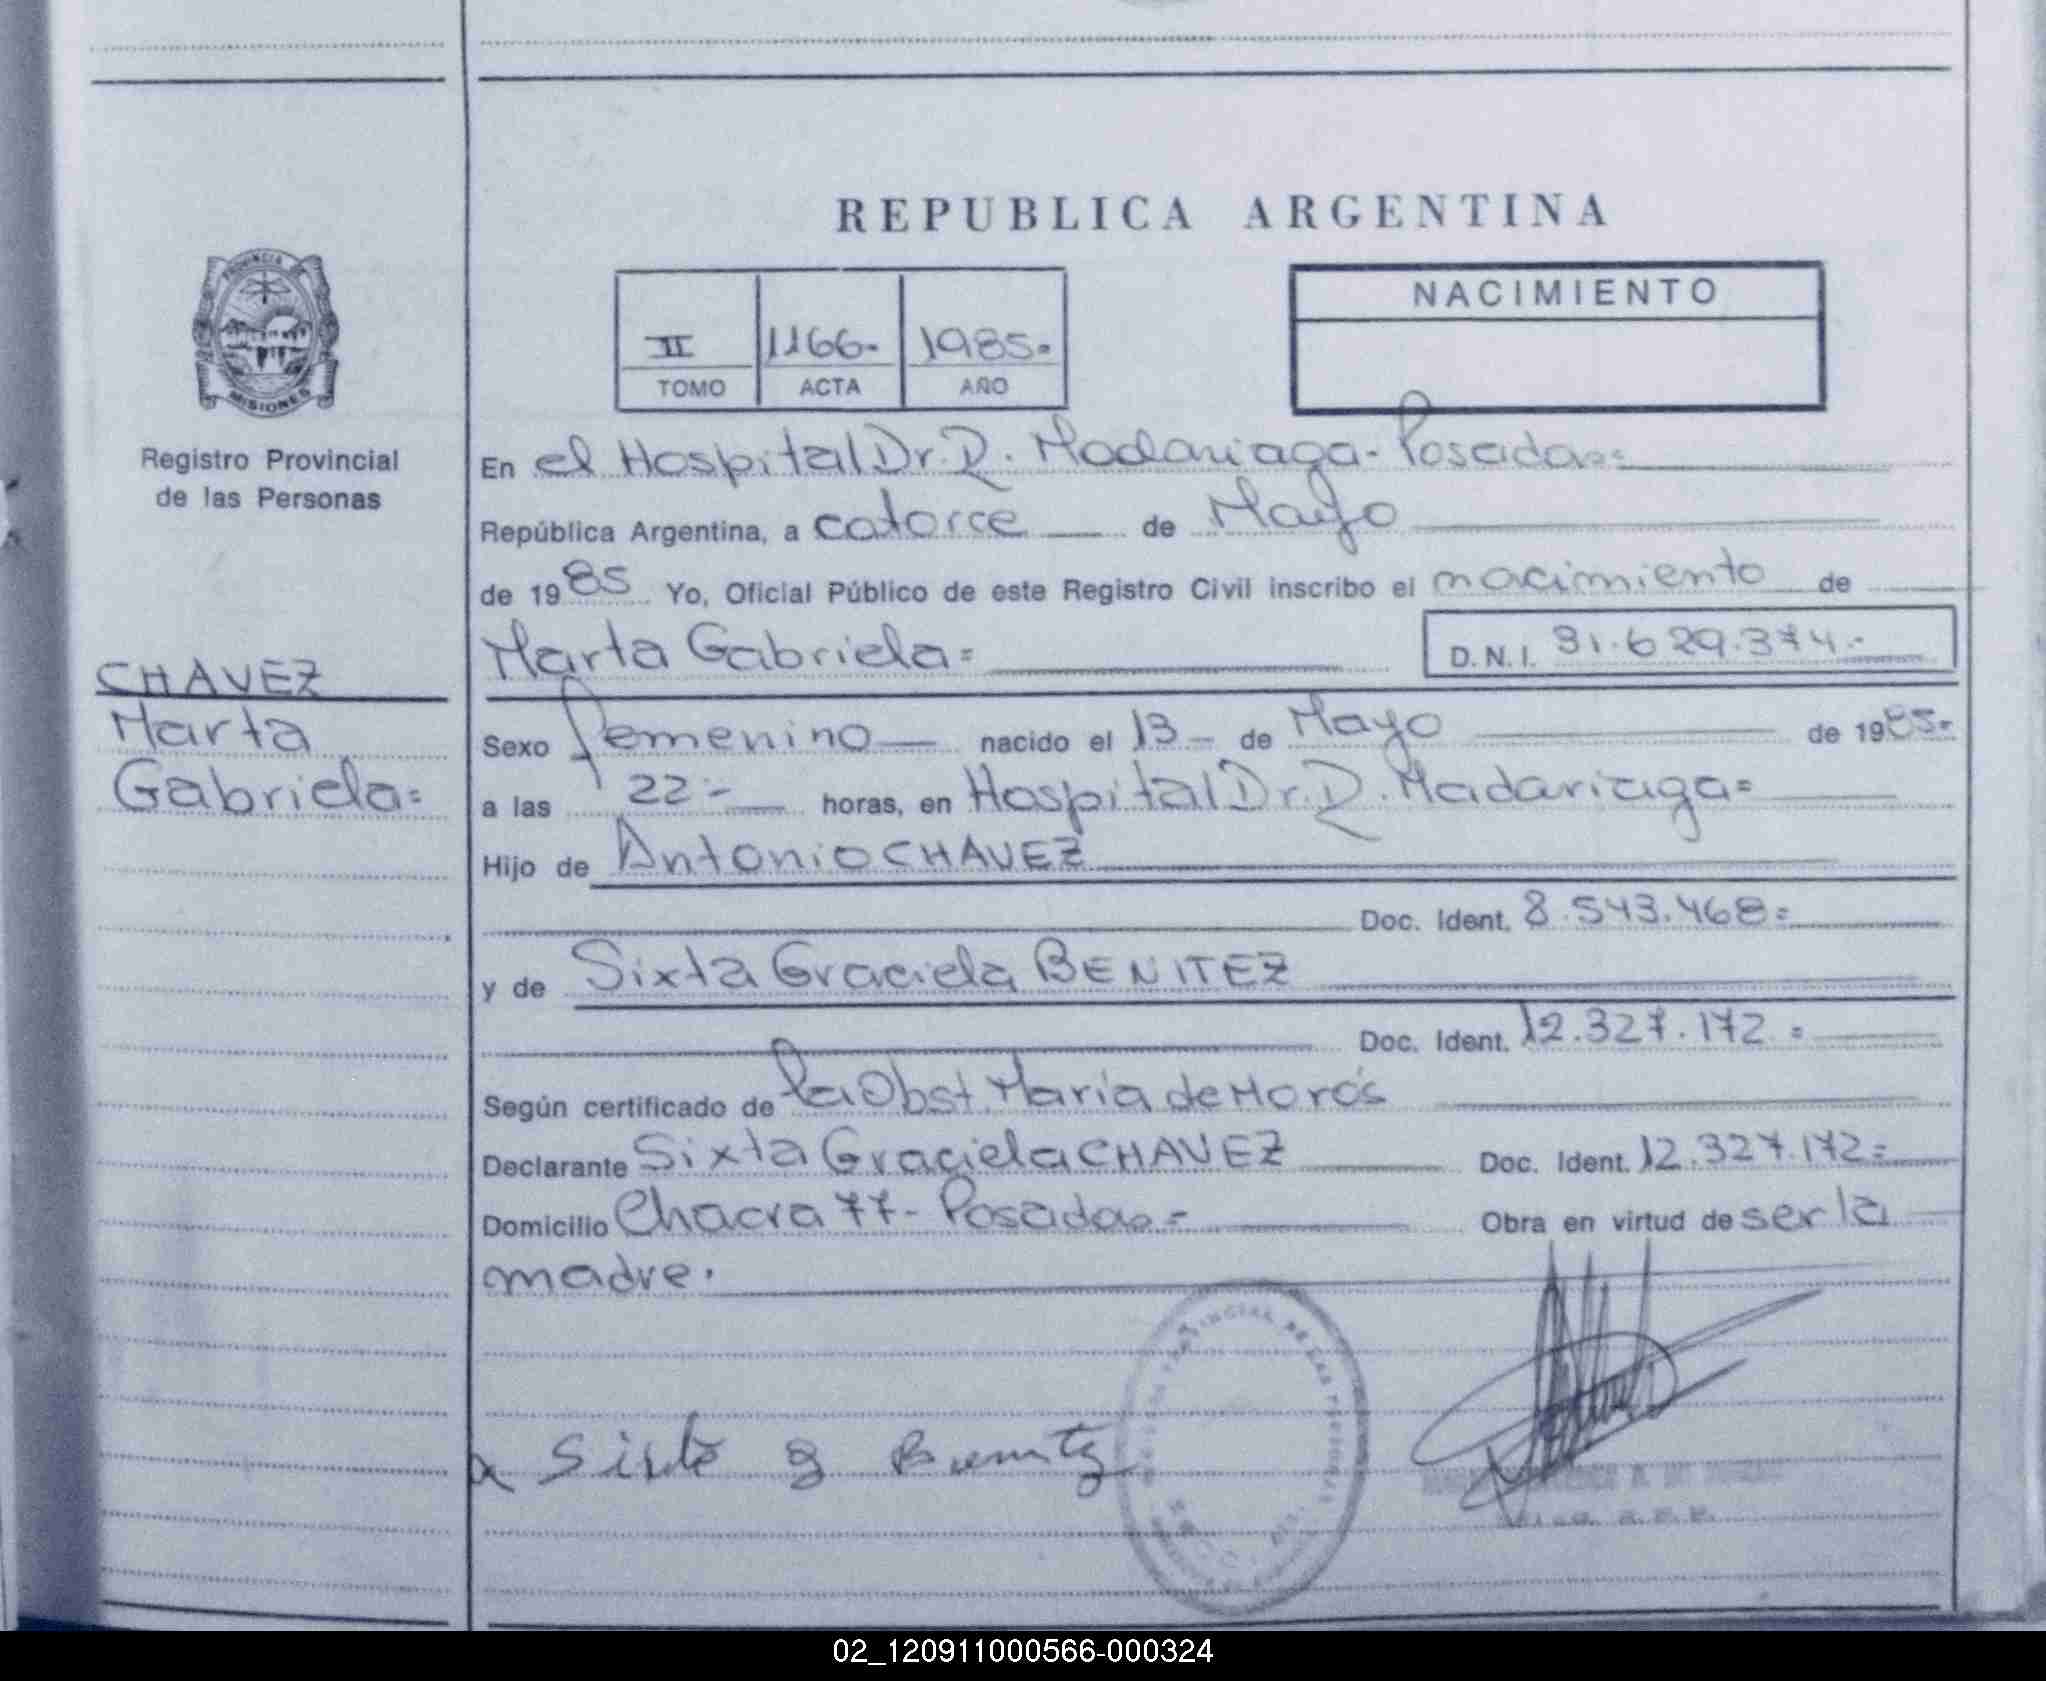 REPUBLICA ARGENTINA
PROVINCIA DE
MISIONES
Registro Provincial
de las Personas
II 1166.- 1985.-
TOMO ACTA AÑO
NACIMIENTO
En el Hospital Dr. R. Madariaga - Posadas=
República Argentina, a catorce de Mayo
de 1985 Yo, Oficial Público de este Registro Civil inscribo el nacimiento de
Marta Gabriela= D.N.I. 31.629.374.-
CHAVEZ
Marta
Gabriela=
Sexo femenino nacido el 13 de Mayo de 1985-
a las 22 horas, en Hospital Dr. R. Madariaga=
Hijo de Antonio CHAVEZ
Doc. Ident. 8.543.468=
y de Sixta Graciela BENITEZ
Doc. Ident. 12.327.172=
Según certificado de la Obst. María de
Declarante Sixta Graciela CHAVEZ Doc. Ident. 12.327.172=
Domicilio Chacra 77- Posadas= Obra en virtud de ser la
madre.
PROVINCIAL DE LAS PERSONAS
02_120911000566-000324